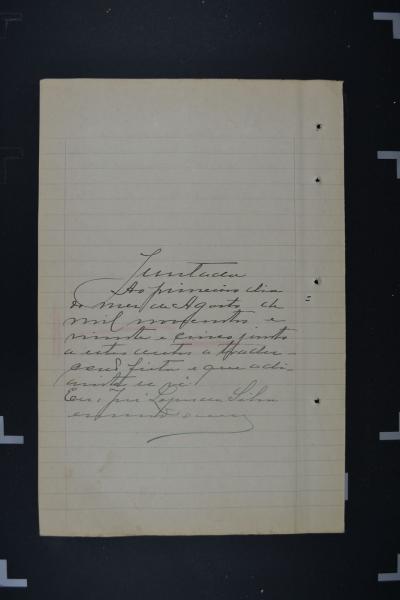 Juntada
Ao primeiro dia
do mez de Agosto de
mil novecentos e
vinte e cinco junto
a estes autos a
feita e que adi-
ante se vê.
Eu, José Lopes da Silva